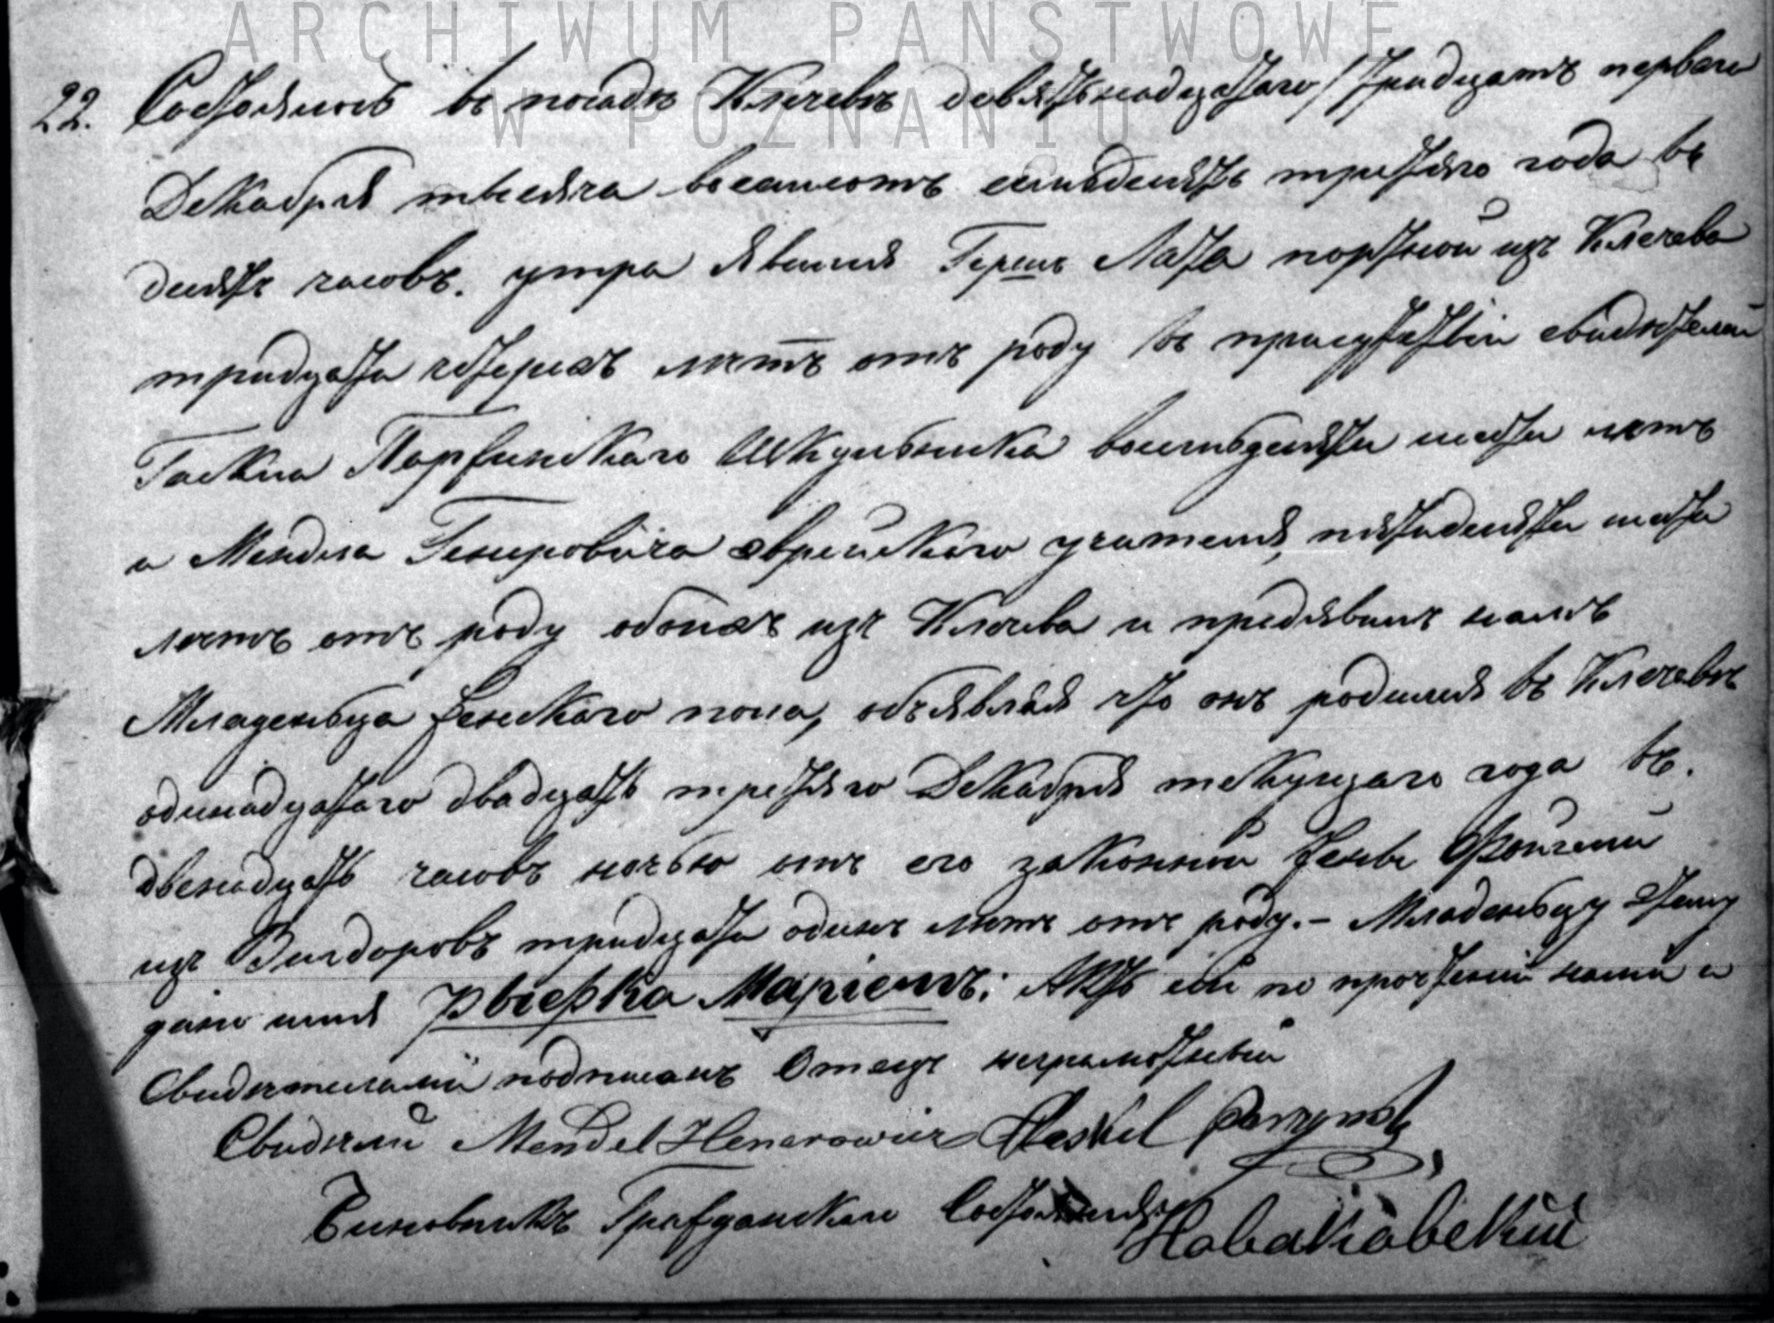 ARCHIWUM PAŃSTWOWE
W POZNANIU
22. Состоялось въ посадѣ Клечевѣ девятьнадцатаго/тридцать перваго
Декабря тысяча восемьсотъ семьдесятъ третьяго года въ
десять часовъ утра явился Герсш Лата портной изъ Клечева
тридцати четерехъ лѣтъ отъ роду въ присутствіи свидѣтелей
Гаскла Паржинскаго Шкульника восемьдесяти шести лѣтъ
и Мендла Генеровича еврейскаго учителя, пятьдесяти шести
лѣтъ отъ роду обоихъ изъ Клечева и предявилъ намъ
Младеньца женскаго пола, объявляя что онъ родился въ Клечевѣ
одинадцатаго двадцать третьяго Декабря текущаго года въ
двенадцать часовъ ночью отъ его законной жены Фойгели
изъ Вигдоровъ тридцати одинъ лѣтъ отъ роду. – Младеньцу этому
дано имя Рывка Маріемъ: Актъ сей по прочтеніи нами и
Свидѣтелями подписанъ Отецъ неграмотный
Свидѣтели Mendel Henerowicz Haskel Parzynski
Чиновникъ Гражданскаго Состоянія Новаковскій